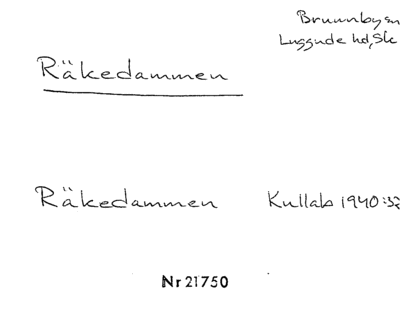 Brunnby sn
Luggude hd, Sk
Räkedammen
Räkedammen Kullab 1940:32
Nr 21750